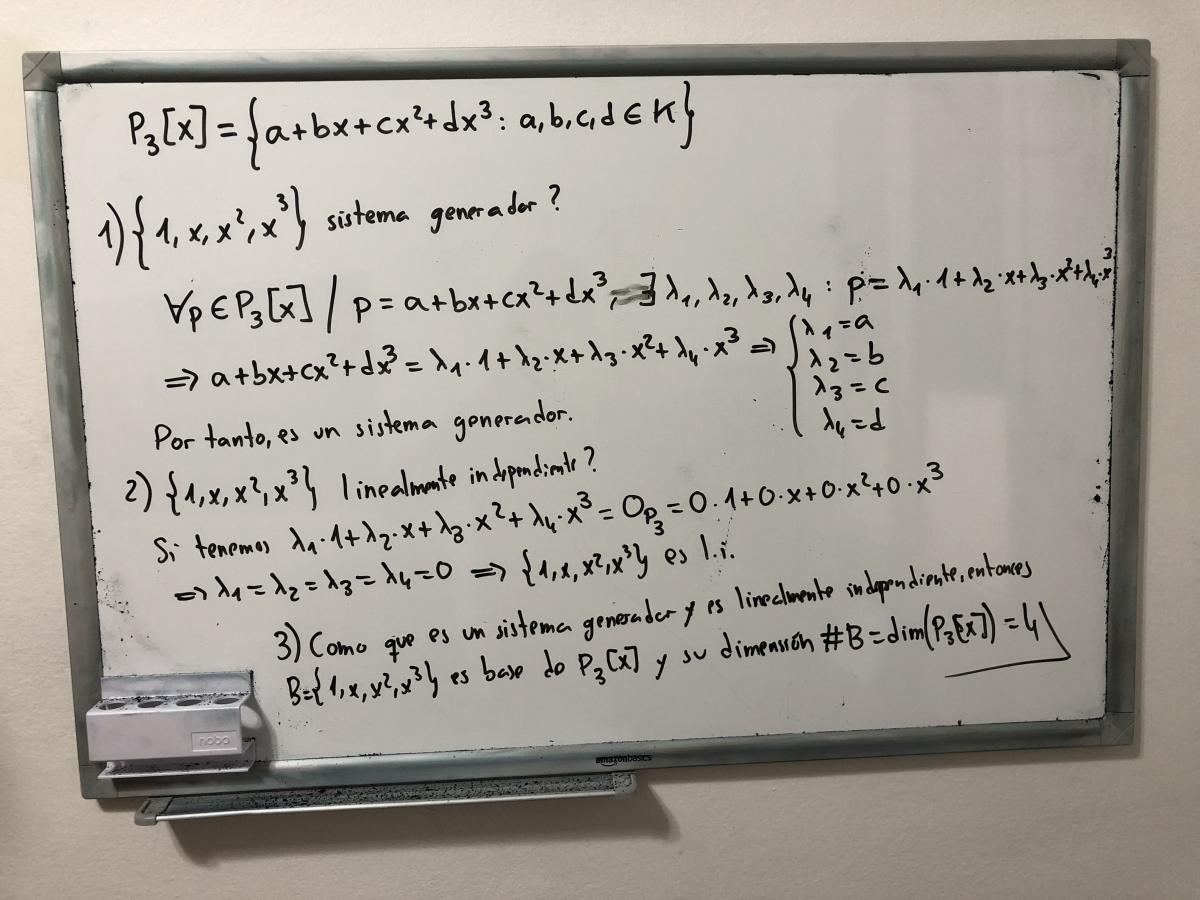 P₃[x] = {a+bx+cx²+dx³ : a,b,c,d ∈ K}
1) {1, x, x², x³} sistema generador?
∀p ∈ P₃[x] / p = a+bx+cx²+dx³, ∃ λ₁, λ₂, λ₃, λ₄ : p = λ₁·1+λ₂·x+λ₃·x²+λ₄·x³
⇒ a+bx+cx²+dx³ = λ₁·1+λ₂·x+λ₃·x²+λ₄·x³ ⇒ { λ₁=a
λ₂=b
λ₃=c
λ₄=d
Por tanto, es un sistema generador.
2) {1, x, x², x³} linealmente independiente?
Si tenemos λ₁·1+λ₂·x+λ₃·x²+λ₄·x³ = 0_P₃ = 0·1+0·x+0·x²+0·x³
⇒ λ₁=λ₂=λ₃=λ₄=0 ⇒ {1, x, x², x³} es l.i.
3) Como que es un sistema generador y es linealmente independiente, entonces
B={1, x, x², x³} es base de P₃[x] y su dimensión #B=dim(P₃[x])=4
nobo
amazonbasics